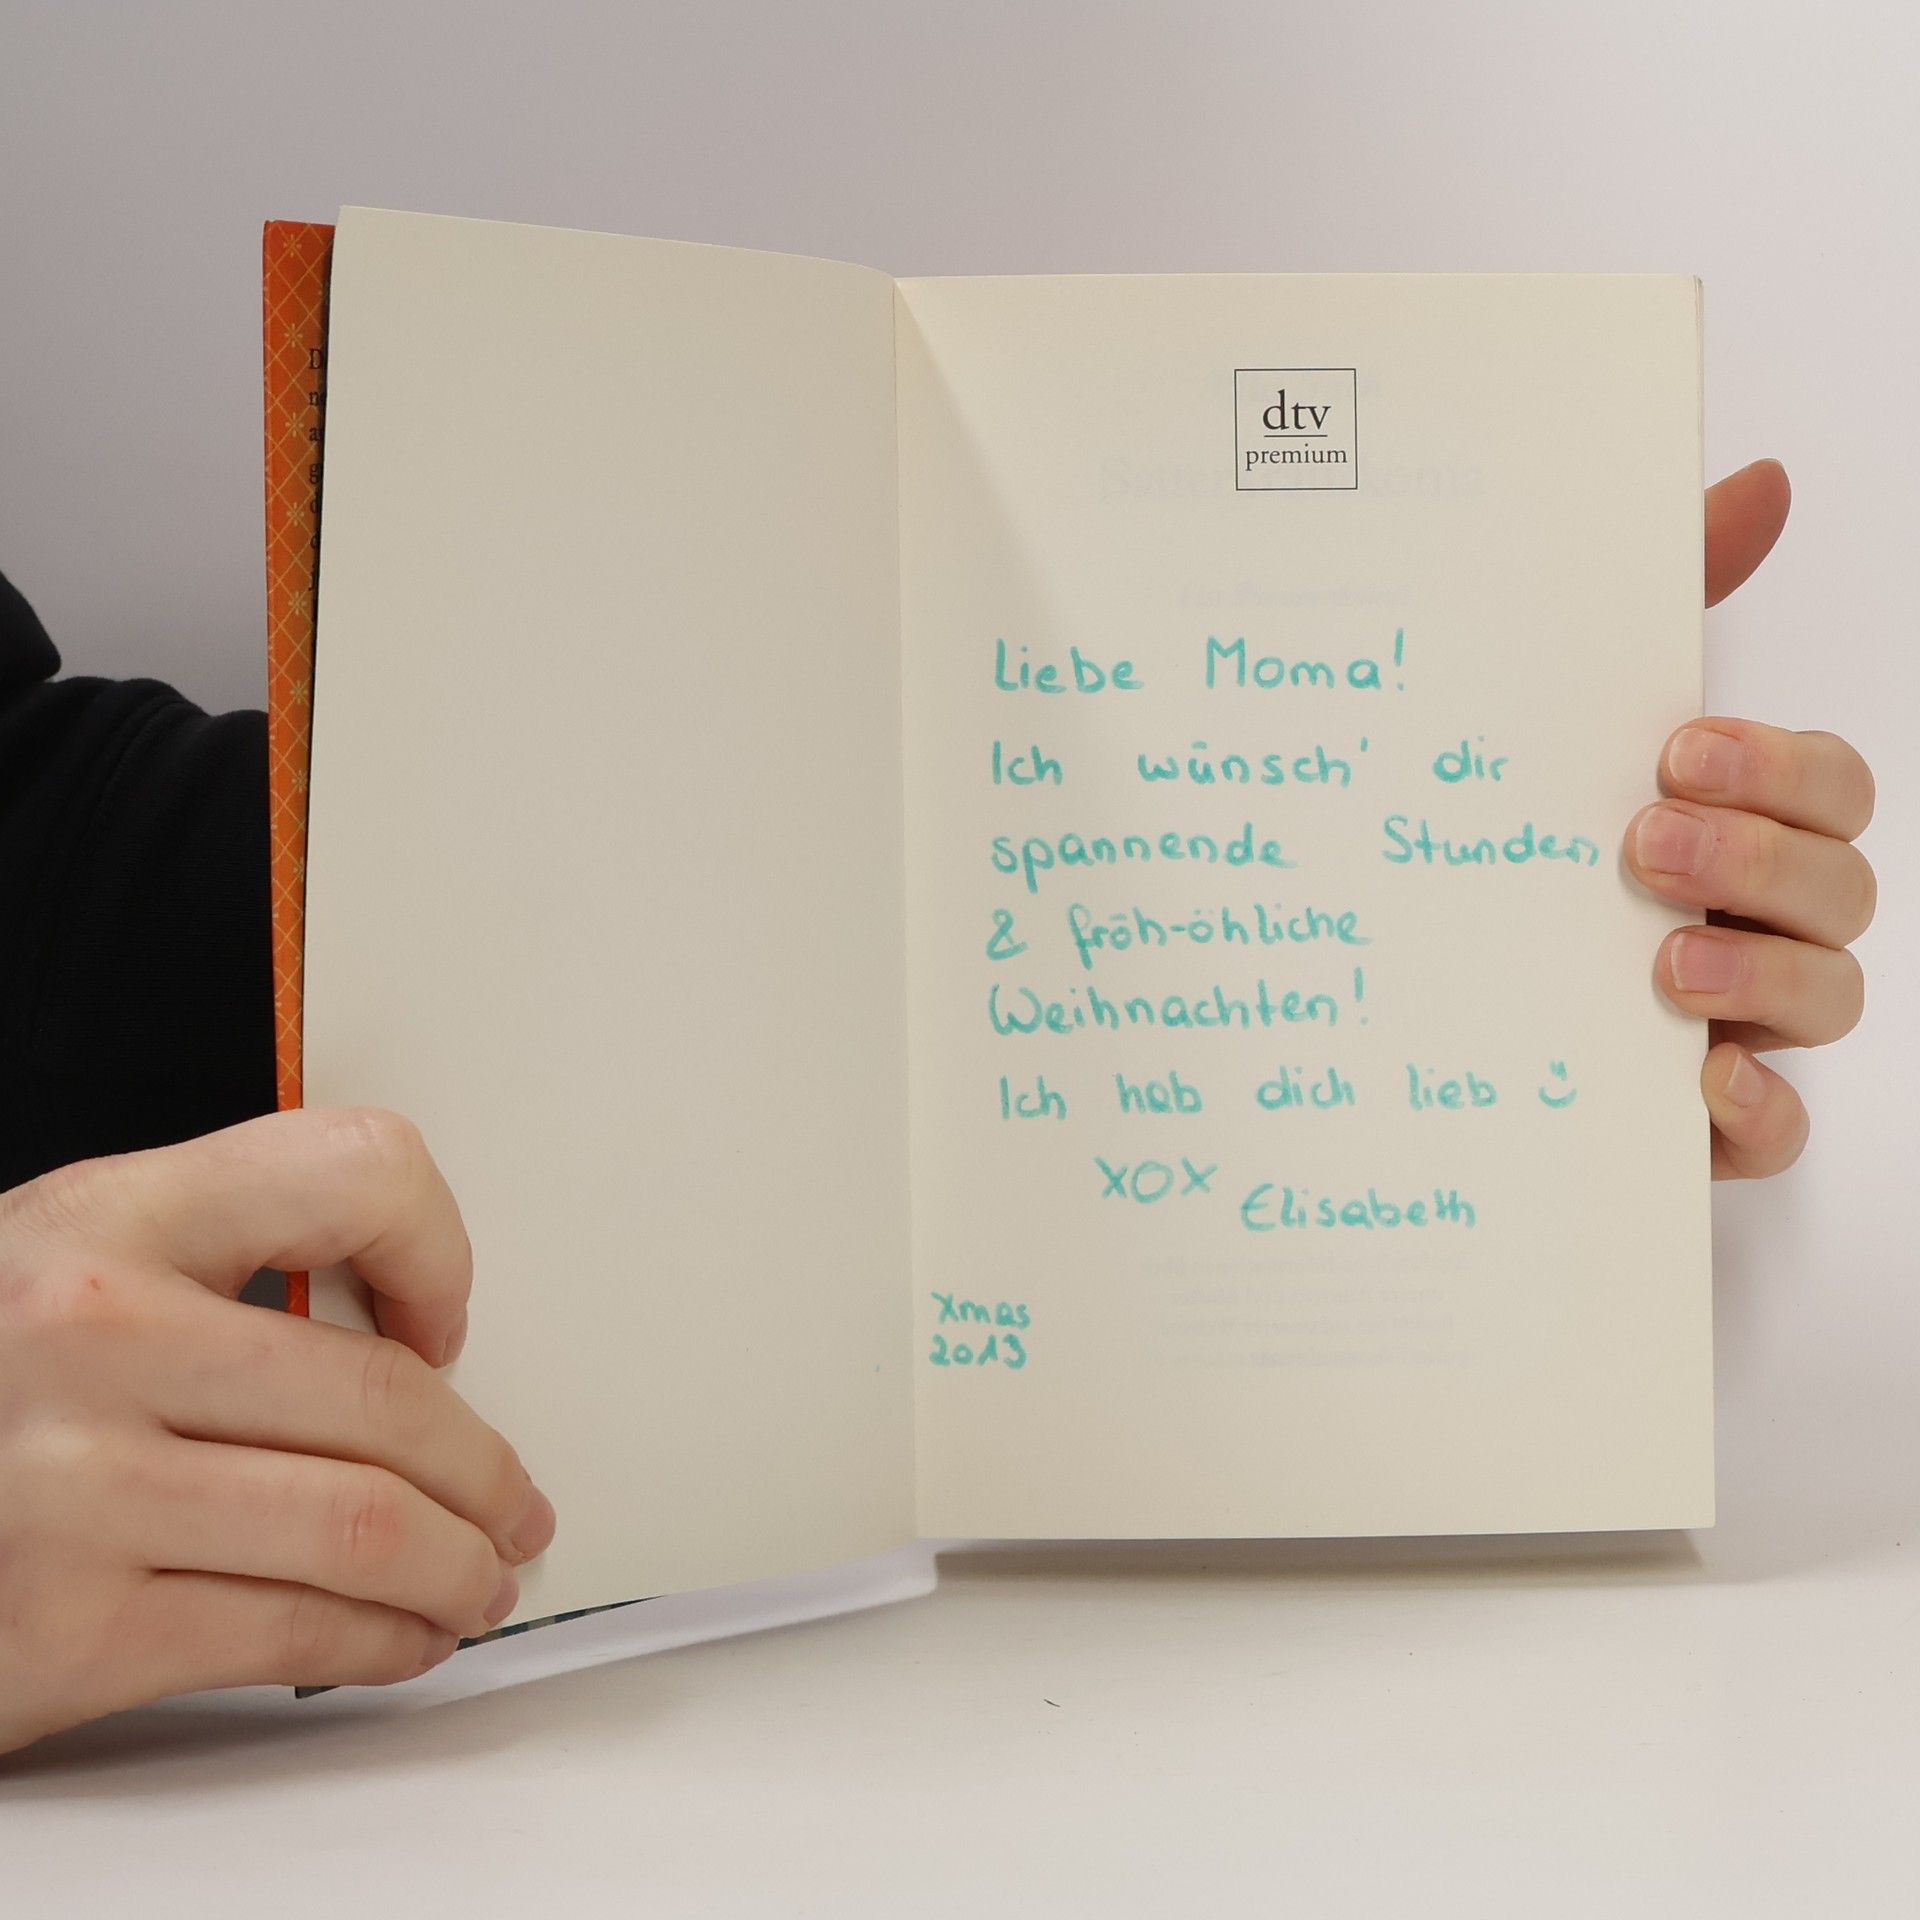 dtv
premium
Liebe Moma!
Ich wünsch' dir
spannende Stunden
& fröh-öhliche
Weihnachten!
Ich hab dich lieb ü
XOX Elisabeth
Xmas
2013